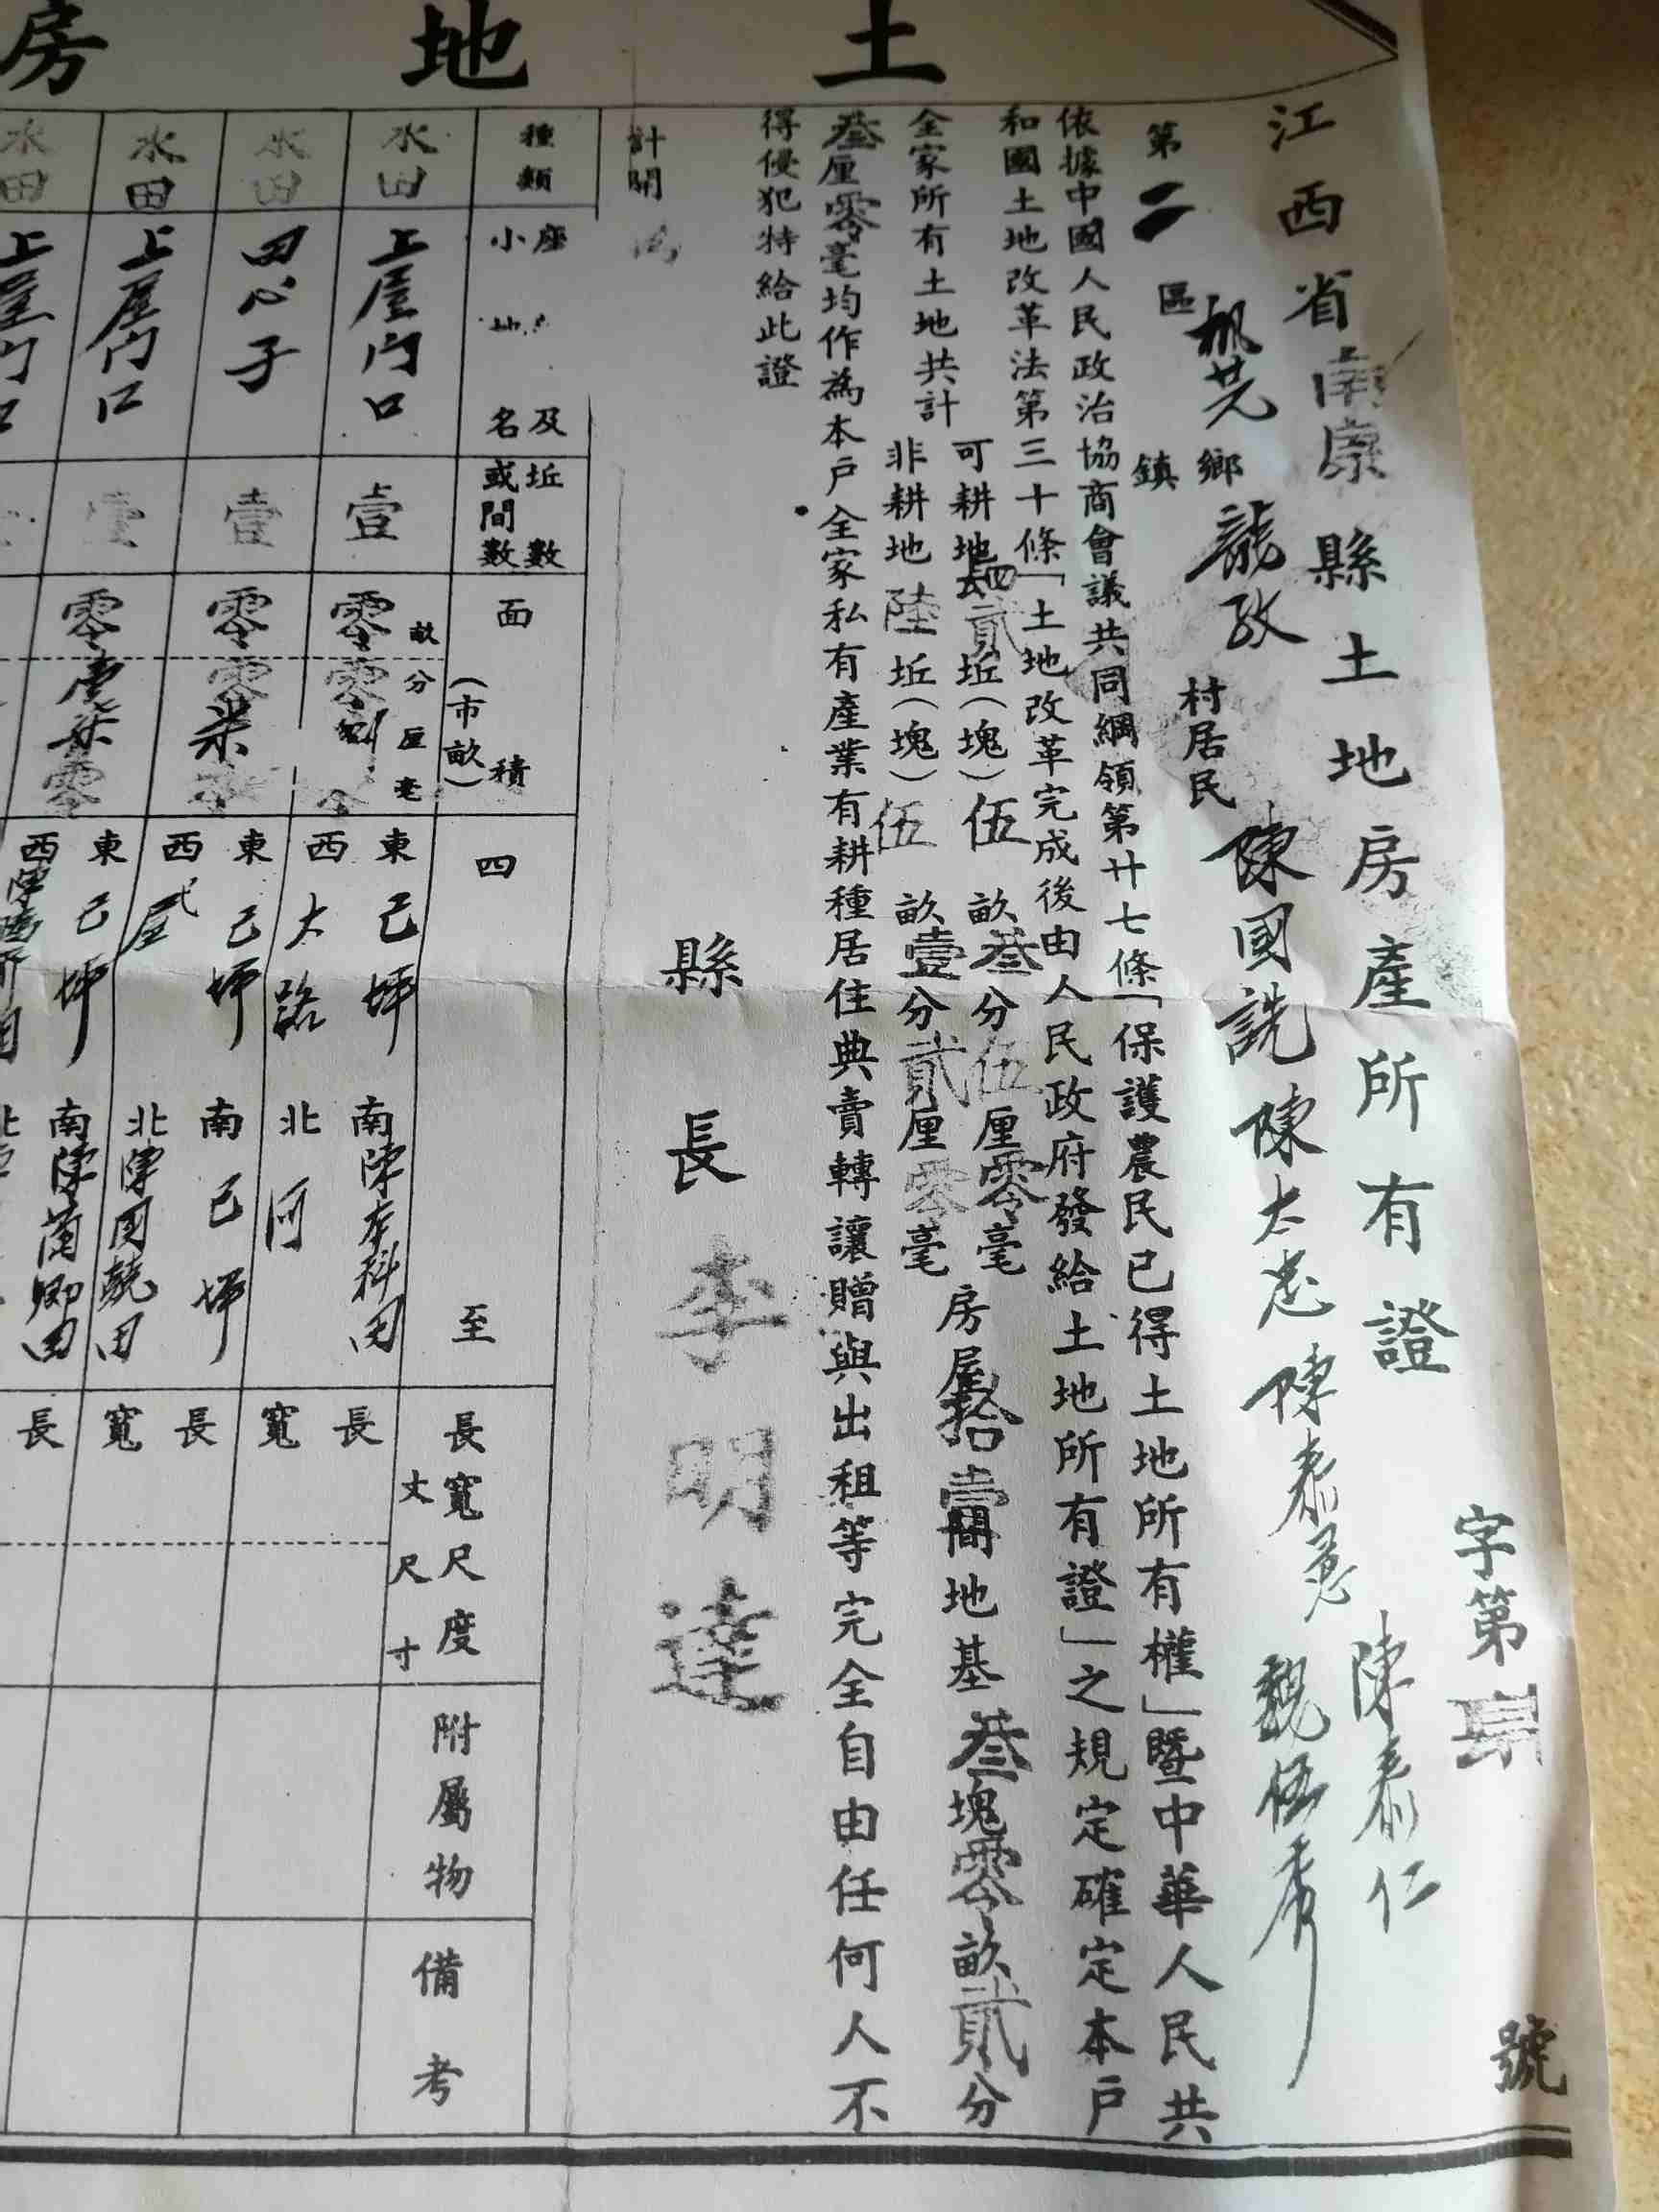 土地房
字第 號
江西省南康縣土地房產所有證
第二區 鄉鎮 村居民陳國 陳太 陳泰 陳泰仁 魏伍秀
依據中國人民政治協商會議共同綱領第廿七條「保護農民已得土地所有權」暨中華人民共
和國土地改革法第三十條「土地改革完成後由人民政府發給土地所有證」之規定確定本戶
全家所有土地共計
可耕地 貳坵(塊)伍畝叁分伍厘零毫
非耕地陸坵(塊)伍畝壹分貳厘零毫
房屋拾壹間地基叁塊零畝貳分
叁厘零毫均作為本戶全家私有產業有耕種居住典賣轉讓贈與出租等完全自由任何人不
得侵犯特給此證
縣長李明達
計開
種類 座小地及名 坵或間數數 面積(市畝) 畝分厘毫 四至 長寬尺度 丈尺寸 附屬物 備考
水田 上屋门口 壹 零零 東己坪 西大路 南陳本科田 北河 長 寬
水田 田心子 壹 零零 東己坪 西 屋 南己坪 北陳國 田 長 寬
水田 上屋门口 壹 零 零 東己坪 西陳 南陳蘭卿田 北 長
水田 上屋门口